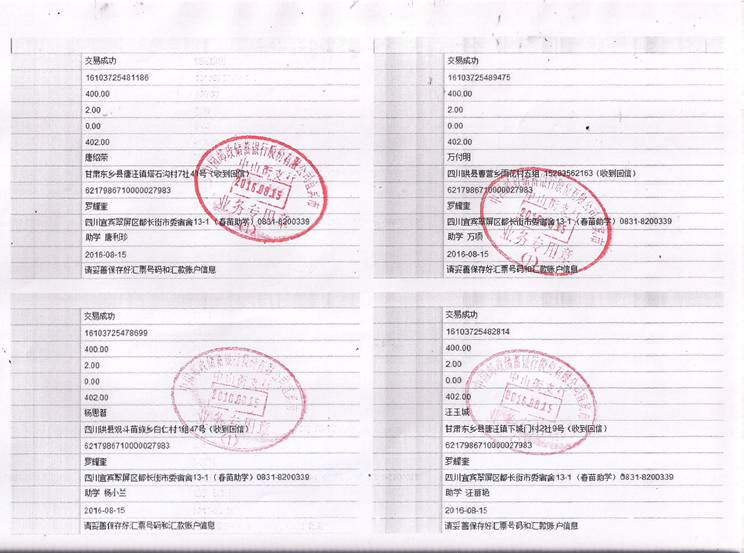 交易成功
16103725481186
400.00
2.00
0.00
402.00
唐绍荣
甘肃东乡县唐汪镇塔石沟村7社41号(收到回信)
6217986710000027983
罗耀奎
四川宜宾翠屏区都长街市委宿舍13-1(春苗助学)0831-8200339
助学 唐利珍
2016-08-15
请妥善保存好汇票号码和汇款账户信息
中国邮政储蓄银行股份有限公司宜宾市
中山街支行
2016.08.15
业务专用章
(1)
交易成功
16103725489475
400.00
2.00
0.00
402.00
万付明
四川珙县春营乡雨花村五组 15283562163(收到回信)
6217986710000027983
罗耀奎
四川宜宾翠屏区都长街市委宿舍13-1(春苗助学)0831-8200339
助学 万顷
2016-08-15
请妥善保存好汇票号码和汇款账户信息
中国邮政储蓄银行股份有限公司宜宾市
中山街支行
2016.08.15
业务专用章
(1)
交易成功
16103725478699
400.00
2.00
0.00
402.00
杨思碧
四川珙县观斗苗族乡白仁村1组47号(收到回信)
6217986710000027983
罗耀奎
四川宜宾翠屏区都长街市委宿舍13-1(春苗助学)0831-8200339
助学 杨小兰
2016-08-15
请妥善保存好汇票号码和汇款账户信息
中山街支行
2016.08.15
业务专用章
(1)
交易成功
16103725482814
400.00
2.00
0.00
402.00
汪玉城
甘肃东乡县唐汪镇下城门村2社9号(收到回信)
6217986710000027983
罗耀奎
四川宜宾翠屏区都长街市委宿舍13-1(春苗助学)0831-8200339
助学 汪丽艳
2016-08-15
请妥善保存好汇票号码和汇款账户信息
中山街支行
2016.08.15
业务专用章
(1)